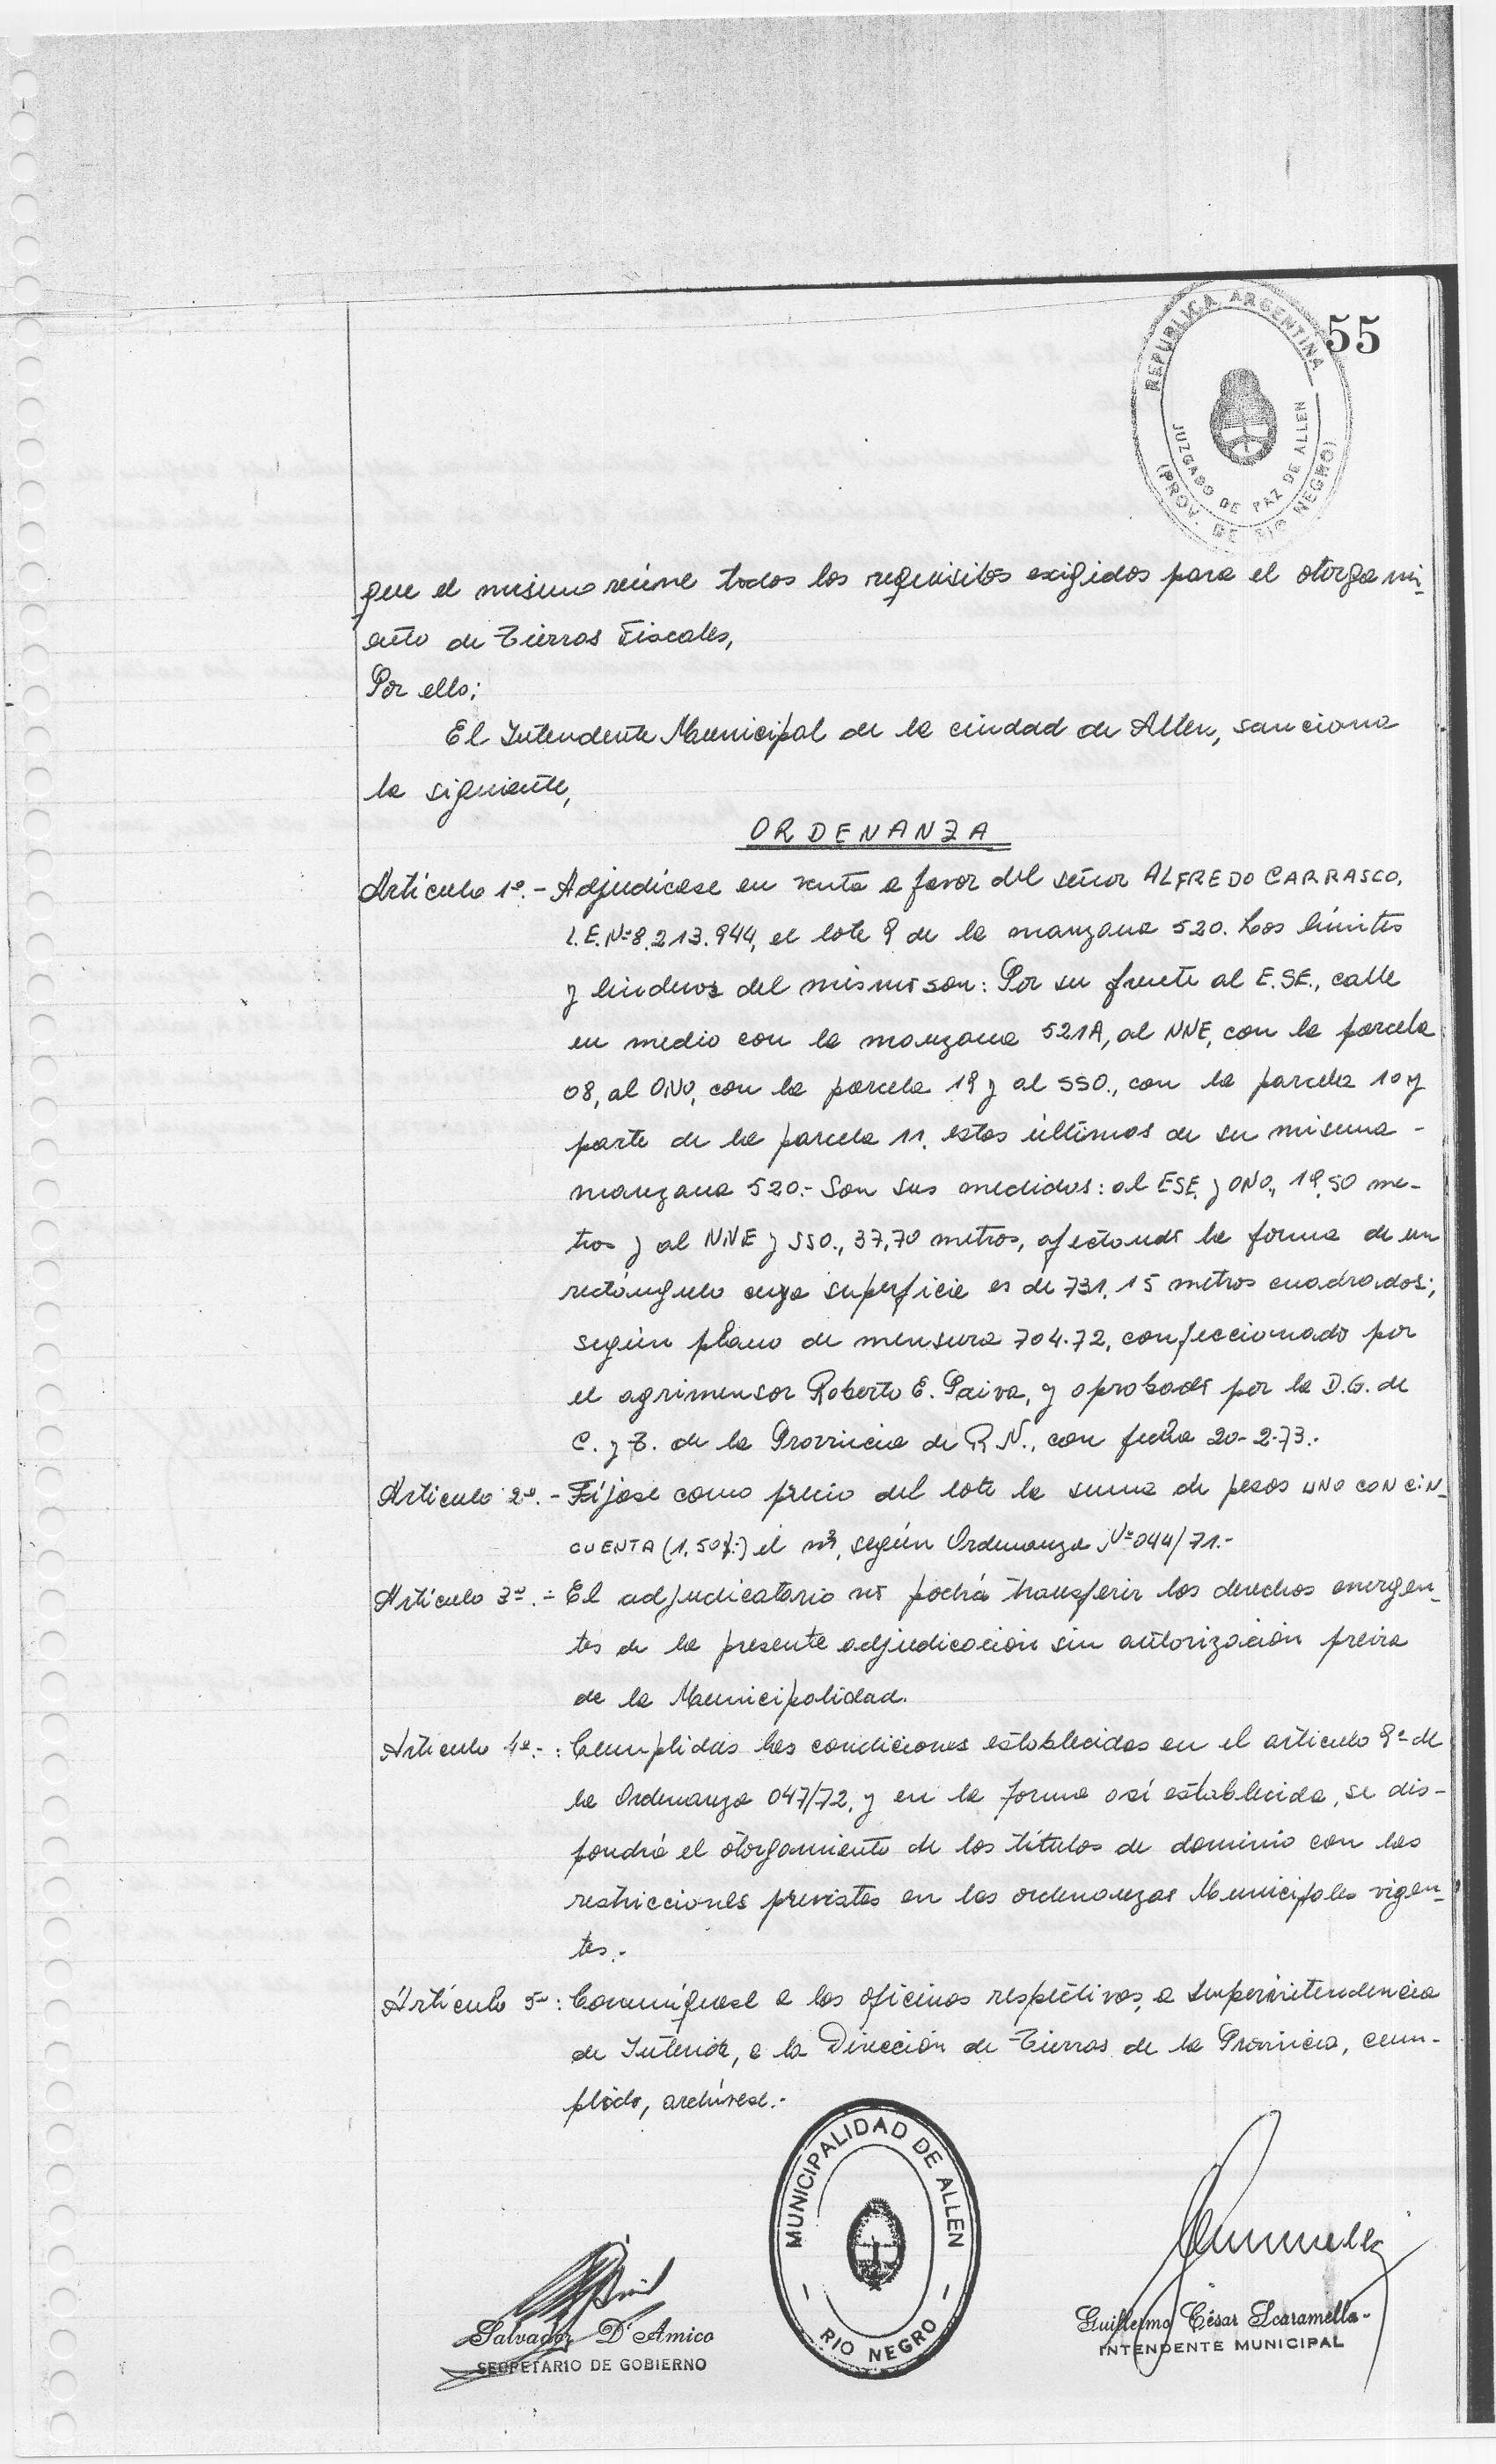 55
REPUBLICA ARGENTINA
JUZGADO DE PAZ DE ALLEN
(PROV. DE RIO NEGRO)
que el mismo reúne todos los requisitos exigidos para el otorgami-
ento de Tierras Fiscales,
Por ello:
El Intendente Municipal de la ciudad de Allen, sanciona
la siguiente,
ORDENANZA
Artículo 1º.- Adjudícase en venta a favor del señor ALFREDO CARRASCO,
L.E.Nº8.213.944, el lote 9 de la manzana 520. Los límites
y linderos del mismo son: Por su frente al E.SE., calle
en medio con la manzana 521A, al NNE, con la parcela
08, al ONO, con la parcela 19 y al SSO., con la parcela 10 y
parte de la parcela 11, estas últimas de su misma -
manzana 520.- Son sus medidas: al ESE. y ONO., 19,50 me-
tros y al NNE y SSO., 37,70 metros, afectando la forma de un
rectángulo cuya superficie es de 731,15 metros cuadrados;
según plano de mensura 704-72, confeccionado por
el agrimensor Roberto E. Paiva, y aprobado por la D.G. de
C. y T. de la Provincia de R.N., con fecha 20-2-73.-
Artículo 2º.- Fíjase como precio del lote la suma de pesos UNO CON CIN-
CUENTA (1,50$.-) el m², según Ordenanza Nº 044/71.-
Artículo 3º.- El adjudicatario no podrá transferir los derechos emergen-
tes de la presente adjudicación sin autorización previa
de la Municipalidad.
Artículo 4º.-: Cumplidas las condiciones establecidas en el artículo 9º de
la Ordenanza 047/72, y en la forma así establecida, se dis-
pondrá el otorgamiento de los títulos de dominio con las
restricciones previstas en las ordenanzas Municipales vigen-
tes.-
Artículo 5º: Comuníquese a las oficinas respectivas, a Superintendencia
de Interior, a la Dirección de Tierras de la Provincia, cum-
plido, archívese.-
MUNICIPALIDAD DE ALLEN
- RIO NEGRO -
Salvador D'Amico
SECRETARIO DE GOBIERNO
Guillermo César Scaramella-
INTENDENTE MUNICIPAL